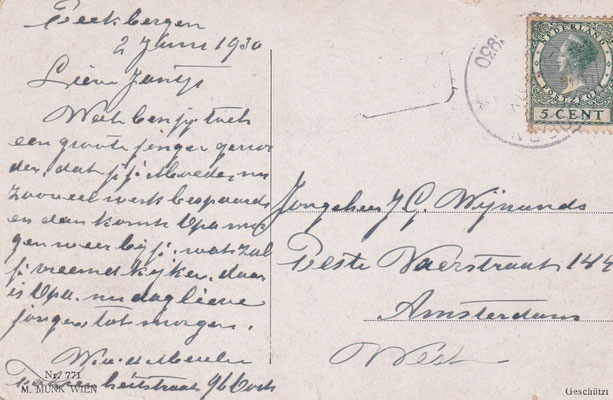 Beekbergen
2 Juni 1930
Lieve Jantje
Wat ben jij toch
een groote jonger gewor
den. dat jij je Moeder nu
zooveel werk bespaard
en dan komt Opa mor
gen weer bij je. wat zal
je vreemd kijken. daar
is Opa. nu dag lieve
jongen tot morgen.
Nr. 771
M. MUNK WIEN
1930
NEDERLAND
POSTZEGEL
5 CENT
Jongeheer J G. Wijnands
Eerste 144
Amsterdam
West
Geschützt